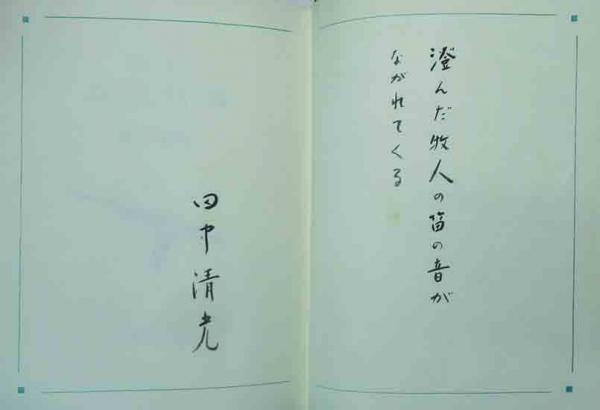 澄んだ牧人の笛の音が
ながれてくる
田中清光